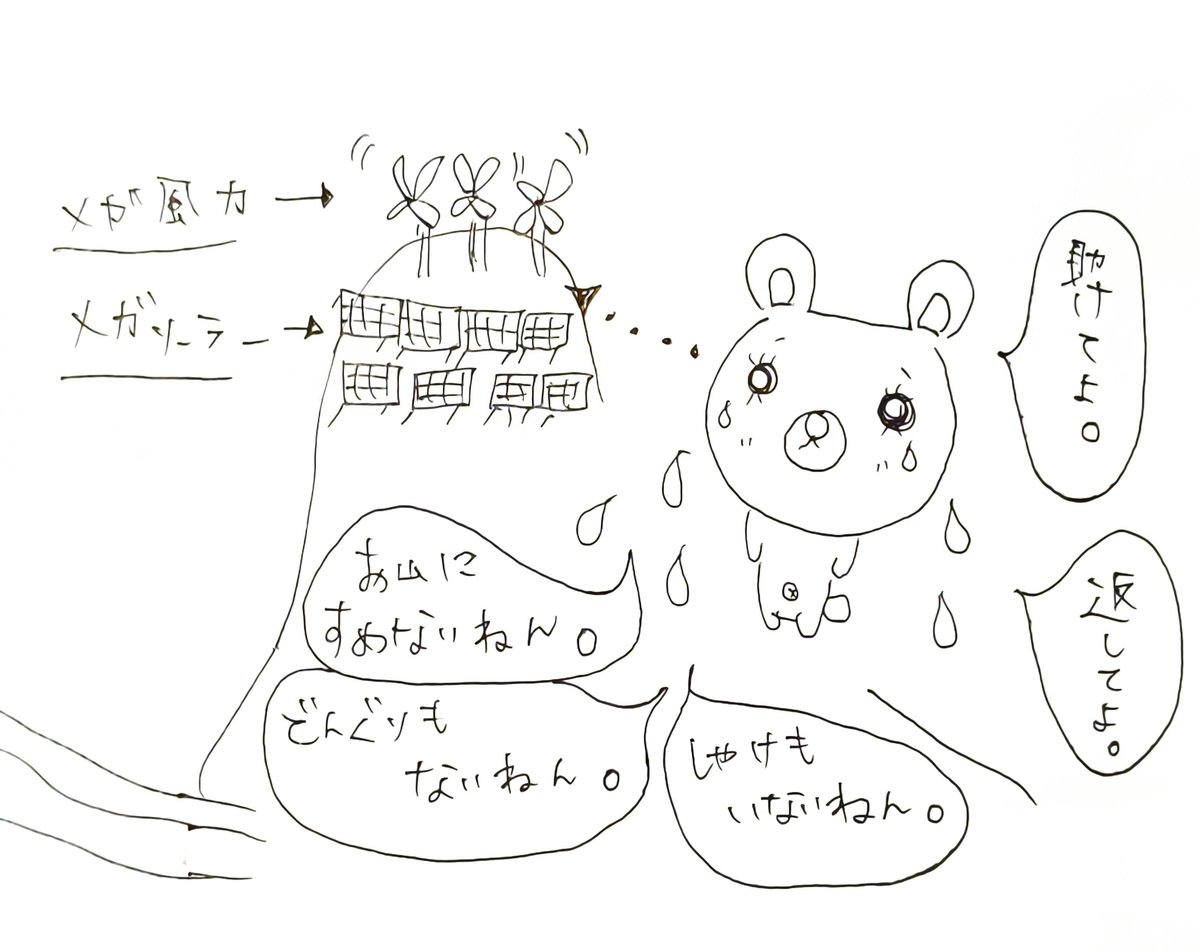 メガ風力
メガソーラー
助けてよ。
返してよ。
お山に
すめないねん。
どんぐりも
ないねん。
しゃけも
いないねん。